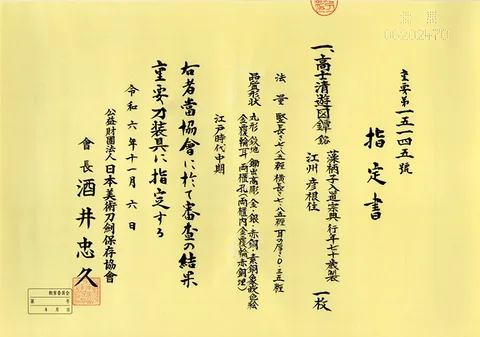 重要第一五一四五號
指定書
一、高士清遊図鐔 銘 藻柄子入道宗典 行年七十歳製
江州彦根住 一枚
法量 竪長さ七・八五糎 横長さ七・八五糎 耳の厚さ〇・三五糎
品質形状 丸形 鉄地 鋤出高彫 金・銀・赤銅・素銅象嵌色絵
金覆輪耳 両櫃孔(両櫃内金覆輪赤銅埋)
江戸時代中期
右者當協會に於て審査の結果
重要刀装具に指定する
令和六年十一月六日
公益財團法人日本美術刀劍保存協會
會長 酒井忠久
教育委員会
第 号
年 月 日